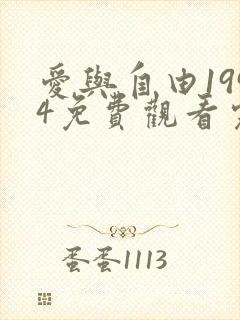 愛與自由199
4免費觀看
蛋蛋1113